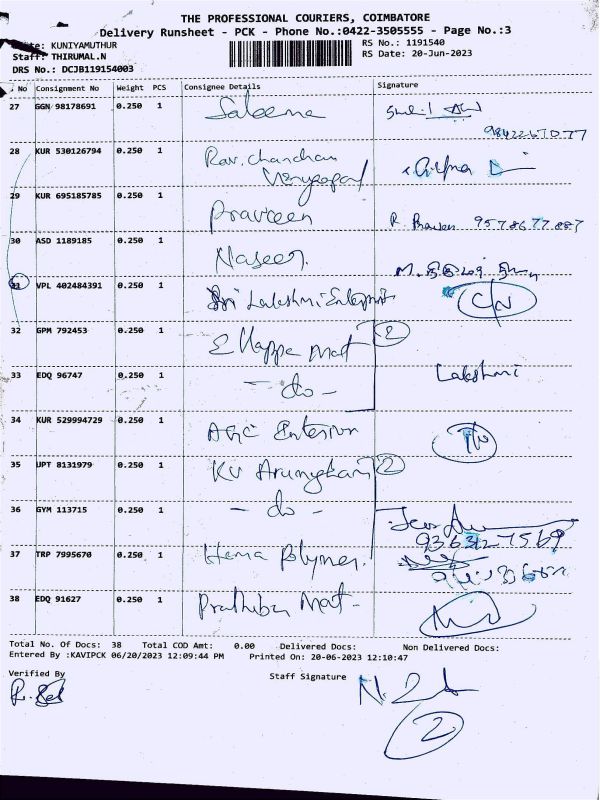 THE PROFESSIONAL COURIERS, COIMBATORE
Delivery Runsheet - PCK - Phone No.:0422-3505555 - Page No.:3
KUNIYAMUTHUR
RS No.: 1191540
Staff: THIRUMAL.N
RS Date: 20-Jun-2023
DRS No.: DCJB119154003
No Consignment No Weight PCS Consignee Details Signature
27 GGN 98178691 0.250 1 Saleema
28 KUR 530126794 0.250 1 Ravichandran
Venugopal
29 KUR 695185785 0.250 1 Praveen 9578677887
30 ASD 1189185 0.250 1 Naseer
VPL 402484391 0.250 1 Sri Lakshmi C/N
32 GPM 792453 0.250 1 2
33 EDQ 96747 0.250 1 - do - Lakshmi
34 KUR 529994729 0.250 1 Interior
35 UPT 8131979 0.250 1 KV 2
36 GYM 113715 0.250 1 - do -
9363427569
37 TRP 7995670 0.250 1 Hema Polymer
38 EDQ 91627 0.250 1 Mat -
Total No. Of Docs: 38 Total COD Amt: 0.00 Delivered Docs: Non Delivered Docs:
Entered By :KAVIPCK 06/20/2023 12:09:44 PM Printed On: 20-06-2023 12:10:47
Verified By Staff Signature
2